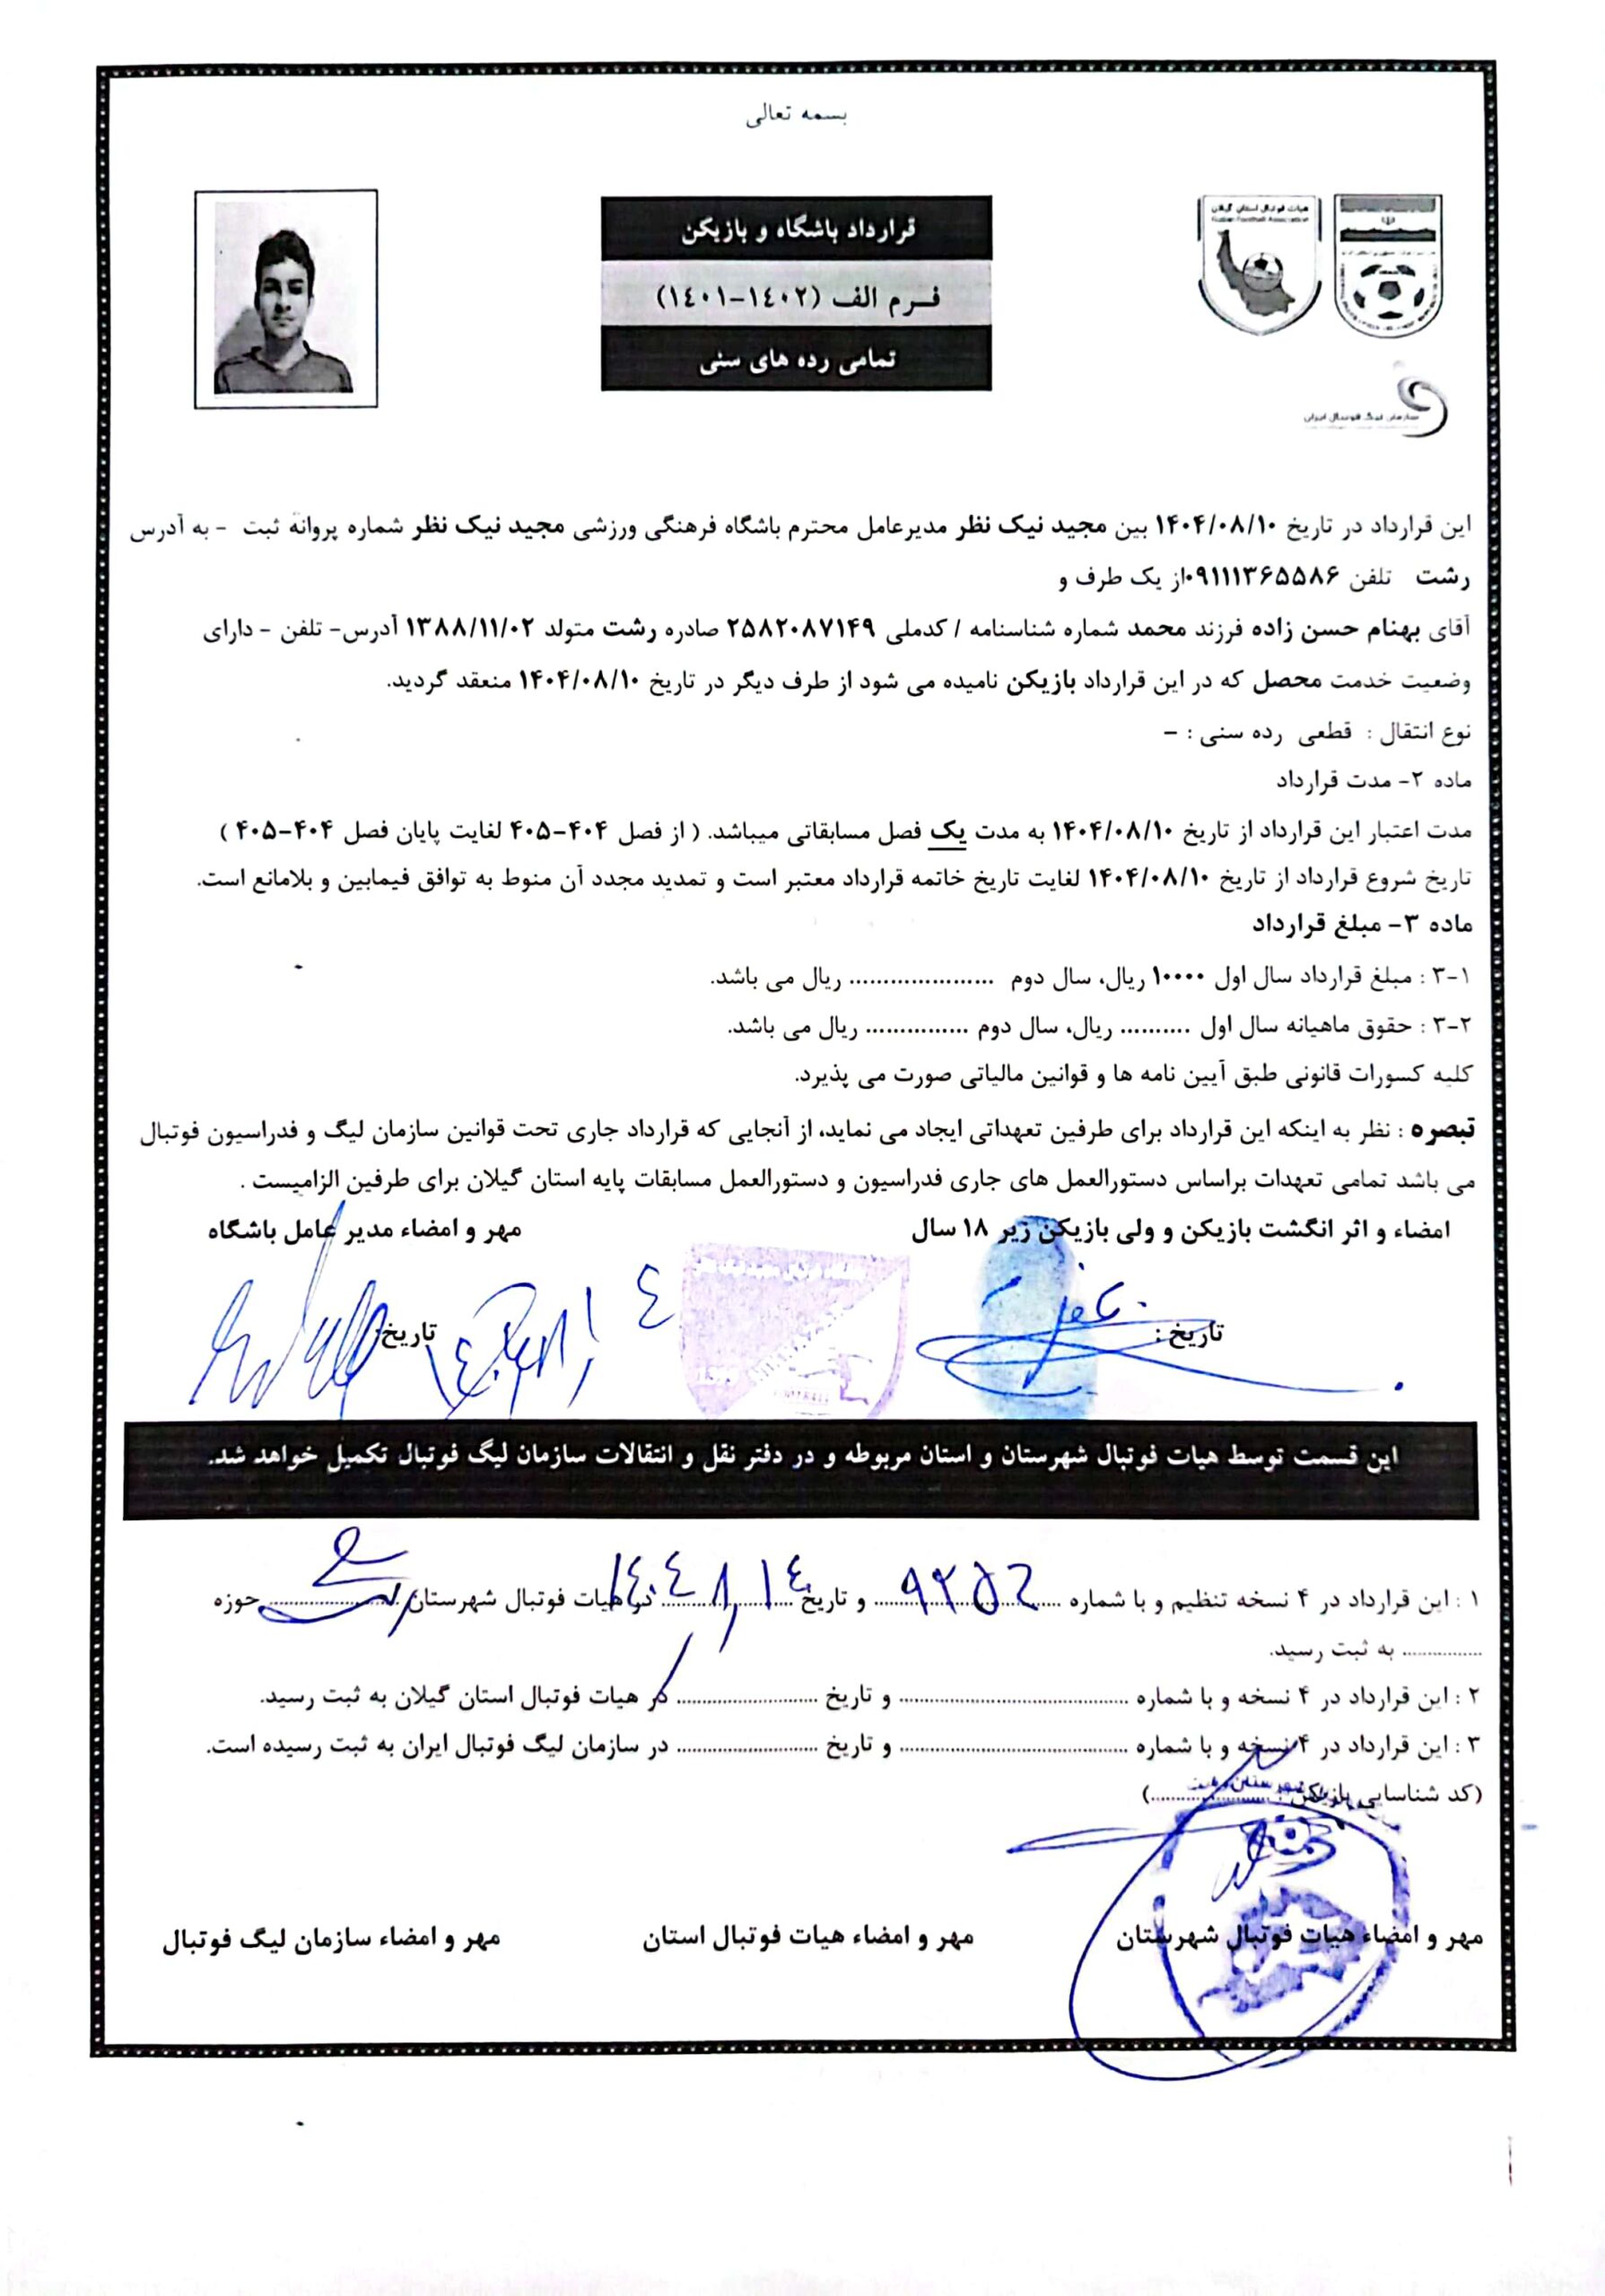 بسمه تعالی
هیات فوتبال استان گیلان
Guilan Football Association
قرارداد باشگاه و بازیکن
فرم الف (١٤٠٢-١٤٠١)
تمامی رده های سنی
سازمان لیگ فوتبال ایران
این قرارداد در تاریخ ۱۴۰۴/۰۸/۱۰ بین مجید نیک نظر مدیرعامل محترم باشگاه فرهنگی ورزشی مجید نیک نظر شماره پروانه ثبت - به آدرس
رشت تلفن ۰۹۱۱۱۳۶۵۵۸۶از یک طرف و
آقای بهنام حسن زاده فرزند محمد شماره شناسنامه / کدملی ۲۵۸۲۰۸۷۱۴۹ صادره رشت متولد ۱۳۸۸/۱۱/۰۲ آدرس- تلفن - دارای
وضعیت خدمت محصل که در این قرارداد بازیکن نامیده می شود از طرف دیگر در تاریخ ۱۴۰۴/۰۸/۱۰ منعقد گردید.
نوع انتقال : قطعی رده سنی : -
ماده ۲- مدت قرارداد
مدت اعتبار این قرارداد از تاریخ ۱۴۰۴/۰۸/۱۰ به مدت یک فصل مسابقاتی میباشد. ( از فصل ۴۰۴-۴۰۵ لغایت پایان فصل ۴۰۴-۴۰۵ )
تاریخ شروع قرارداد از تاریخ ۱۴۰۴/۰۸/۱۰ لغایت تاریخ خاتمه قرارداد معتبر است و تمدید مجدد آن منوط به توافق فیمابین و بلامانع است.
ماده ۳- مبلغ قرارداد
۳-۱ : مبلغ قرارداد سال اول ۱۰۰۰۰ ریال، سال دوم ..................... ریال می باشد.
۳-۲ : حقوق ماهیانه سال اول .......... ریال، سال دوم ............... ریال می باشد.
کلیه کسورات قانونی طبق آیین نامه ها و قوانین مالیاتی صورت می پذیرد.
تبصره : نظر به اینکه این قرارداد برای طرفین تعهداتی ایجاد می نماید، از آنجایی که قرارداد جاری تحت قوانین سازمان لیگ و فدراسیون فوتبال
می باشد تمامی تعهدات براساس دستورالعمل های جاری فدراسیون و دستورالعمل مسابقات پایه استان گیلان برای طرفین الزامیست .
امضاء و اثر انگشت بازیکن و ولی بازیکن زیر ۱۸ سال
مهر و امضاء مدیر عامل باشگاه
تاریخ :
تاریخ:
این قسمت توسط هیات فوتبال شهرستان و استان مربوطه و در دفتر نقل و انتقالات سازمان لیگ فوتبال تکمیل خواهد شد.
۱ : این قرارداد در ۴ نسخه تنظیم و با شماره ......... و تاریخ ١٤٠٤/٨/١٤ در هیات فوتبال شهرستان رشت حوزه
............... به ثبت رسید.
۲ : این قرارداد در ۴ نسخه و با شماره ......................... و تاریخ ......................... در هیات فوتبال استان گیلان به ثبت رسید.
۳ : این قرارداد در ۴ نسخه و با شماره ......................... و تاریخ ......................... در سازمان لیگ فوتبال ایران به ثبت رسیده است.
(کد شناسایی بازیکن : .....................)
مهر و امضاء هیات فوتبال شهرستان
مهر و امضاء هیات فوتبال استان
مهر و امضاء سازمان لیگ فوتبال